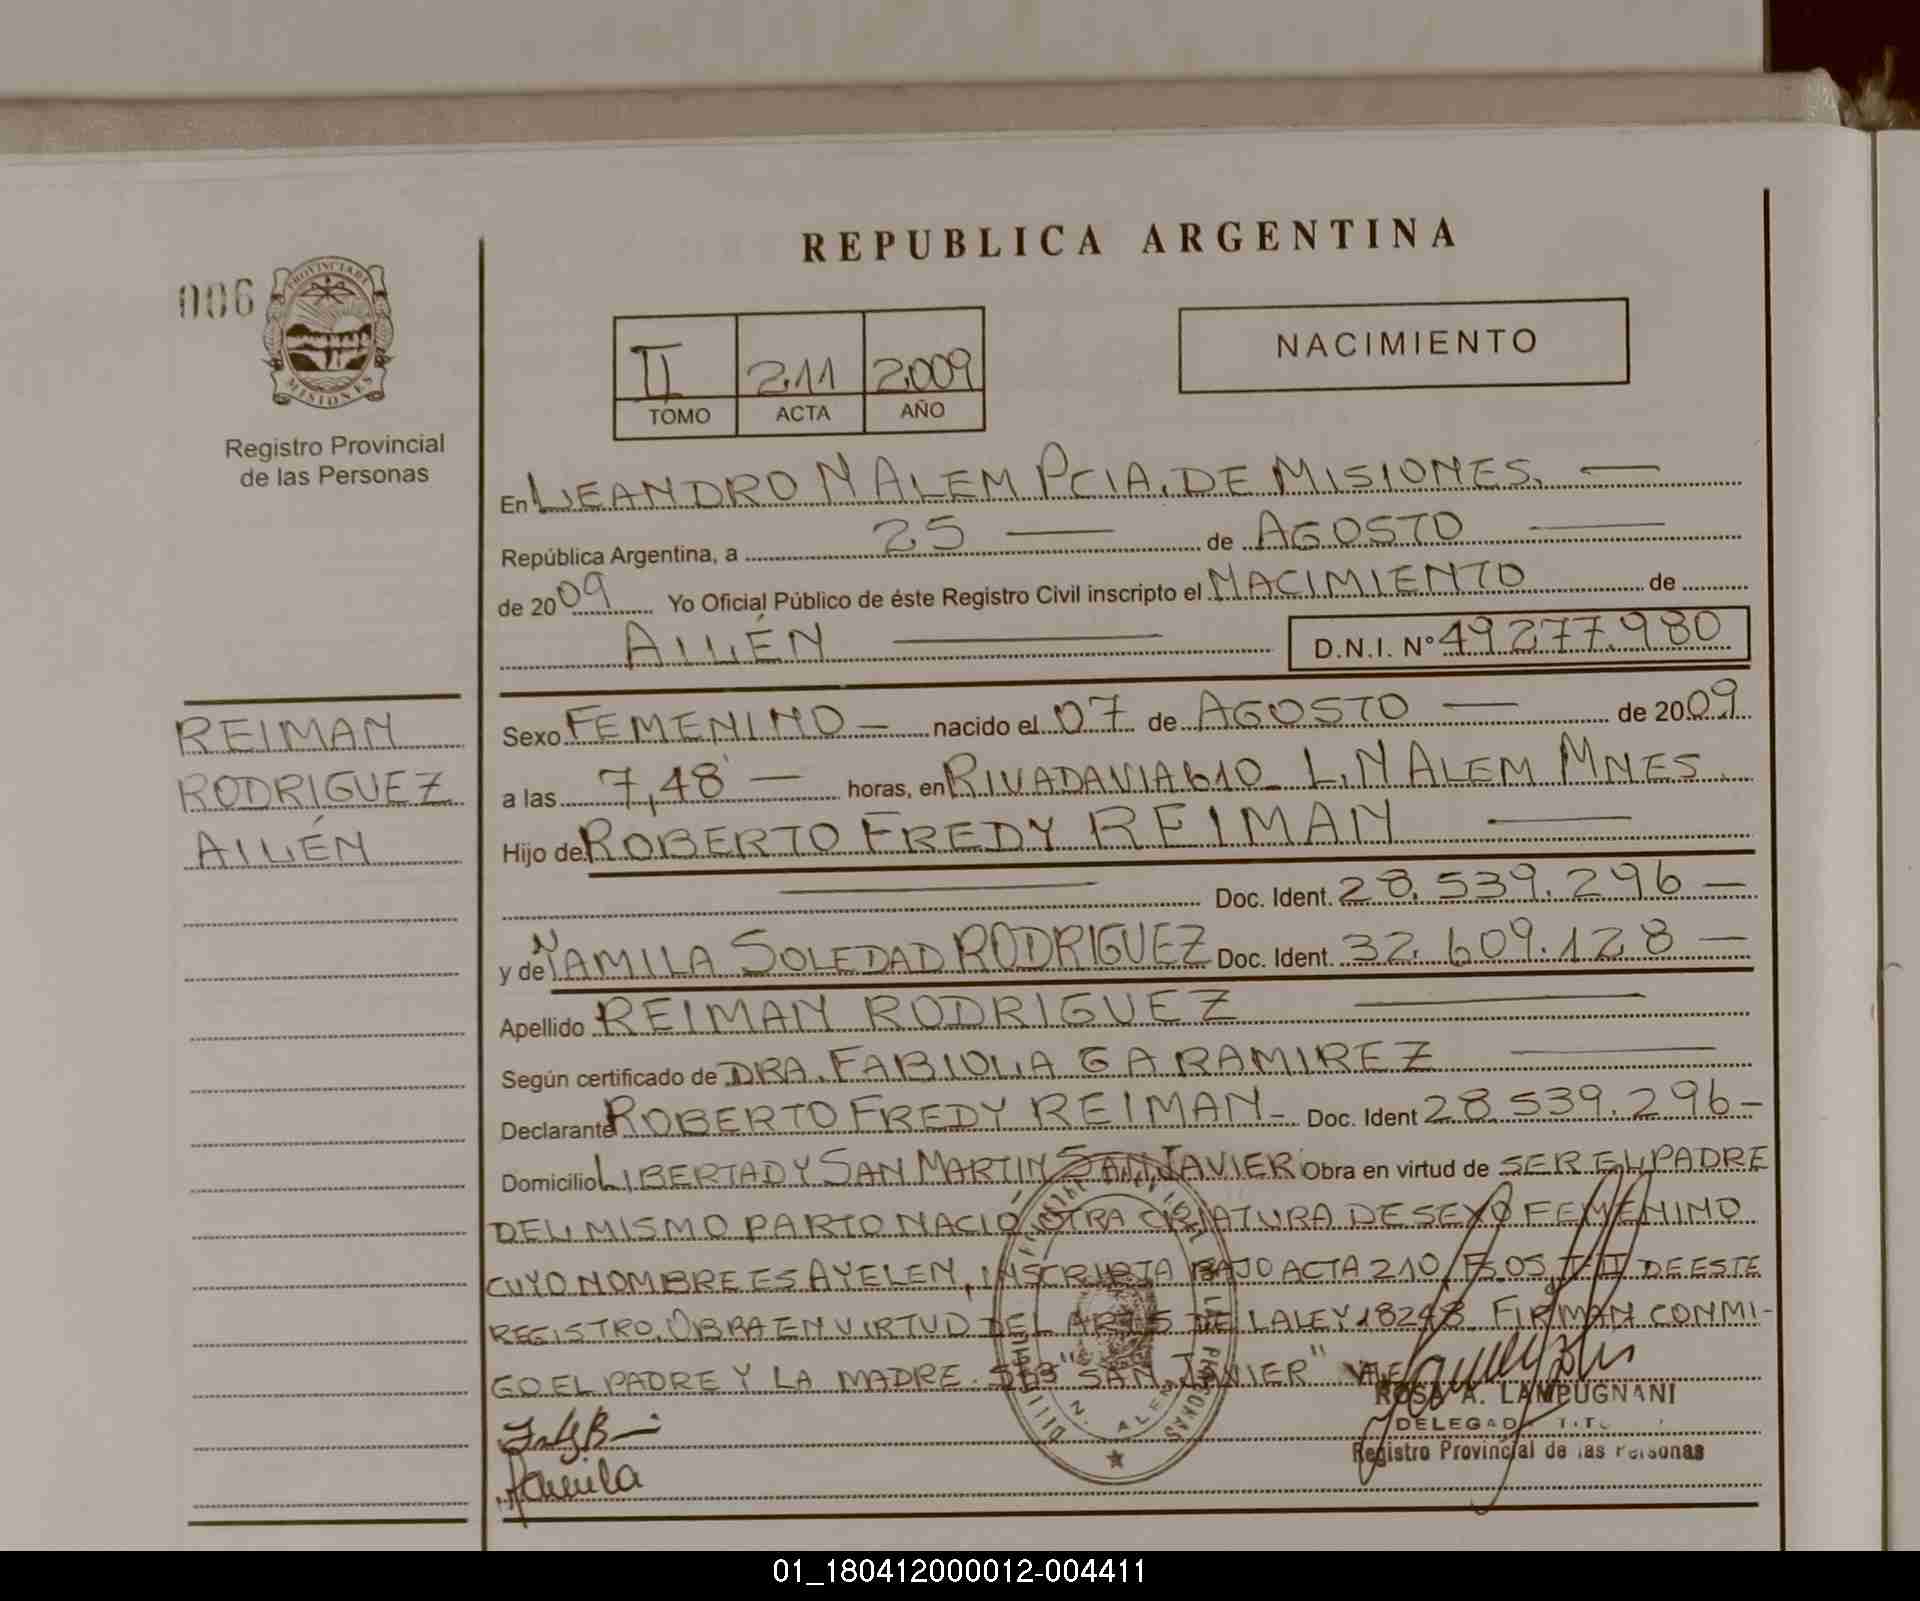 REPUBLICA ARGENTINA
006
PROVINCIA DE
MISIONES
Registro Provincial
de las Personas
II 211 2009
TOMO ACTA AÑO
NACIMIENTO
En LEANDRO N ALEM PCIA. DE MISIONES.
República Argentina, a 25 de AGOSTO
de 2009 Yo Oficial Público de éste Registro Civil inscripto el NACIMIENTO de
AILÉN D.N.I. Nº 49.277.980
REIMAN
RODRIGUEZ
AILÉN
Sexo FEMENINO nacido el 07 de AGOSTO de 2009
a las 7,48 horas, en RIVADAVIA 610 L.N ALEM MNES.
Hijo de ROBERTO FREDY REIMAN
Doc. Ident. 28.539.296
y de YAMILA SOLEDAD RODRIGUEZ Doc. Ident. 32.609.128
Apellido REIMAN RODRIGUEZ
Según certificado de DRA. FABIOLA G A RAMIREZ
Declarante ROBERTO FREDY REIMAN Doc. Ident 28.539.296
Domicilio LIBERTAD Y SAN MARTIN SAN JAVIER Obra en virtud de SER EL PADRE
DEL MISMO PARTO NACIÓ OTRA CRIATURA DE SEXO FEMENINO
CUYO NOMBRE ES AYELEN, INSCRIPTA BAJO ACTA 210, Fº 05, Tº II DE ESTE
REGISTRO. OBRA EN VIRTUD DEL ART 5 DE LA LEY 18248. FIRMAN CONMI-
GO EL PADRE Y LA MADRE. "SAN JAVIER" VALE
ROSA A. LAMPUGNANI
DELEGADA TIT.
Registro Provincial de las Personas
Yamila
N. ALEM
01_180412000012-004411